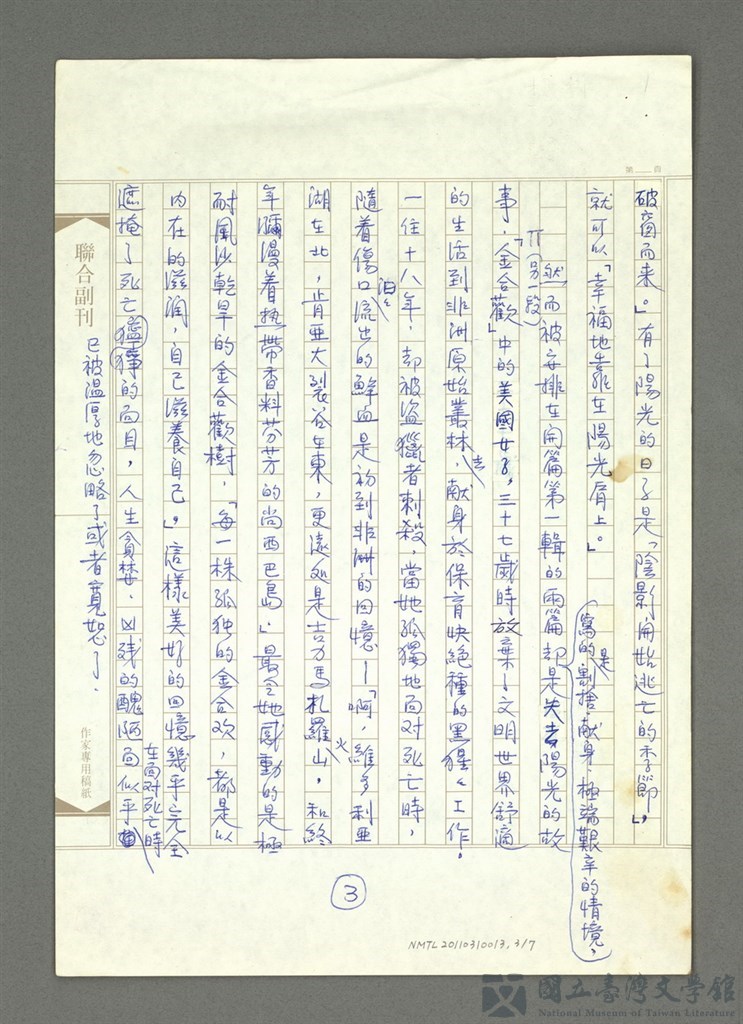 第 頁
破窗而來。」有了陽光的日子是「陰影開始逃亡的季節」,
就可以「幸福地靠在陽光肩上。」
寫的是割捨、献身、極端艱辛的情境,
(另一段)
然而被安排在開篇第一輯的兩篇却是失去陽光的故
事,「金合歡」中的美國女子,三十七歲時放棄了文明世界舒適
的生活到非洲原始叢林去,献身於保育快絕種的黑猩々工作。
一住十八年,却被盜獵者刺殺,當她孤獨地面對死亡時,
隨着傷口汩々流出的鮮血是初到非洲的回憶—「啊,維多利亞
湖在北,肯亞大裂谷在東,更遠処是吉力馬札羅火山,和終
年瀰漫着热帶香料芬芳的尚西巴島」最令她感動的是極
耐風沙乾旱的金合歡樹,「每一株孤独的金合欢,都是以
內在的滋潤,自己滋養自己。」這樣美好的回憶幾乎完全
遮掩了死亡猙獰的面目,人生貪婪、凶残的醜陋面似乎在面對死亡時
已被溫厚地忽略了或者寬恕了.
聯合副刊
作家專用稿紙
3
NMTL20110310013, 3/7
國立臺灣文學館
National Museum of Taiwan Literature